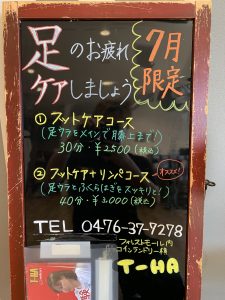 足のお疲れ
ケアしましょう
7月
限定
① フットケアコース
(足ウラをメインで膝上まで!)
30分・¥2500(税込)
② フットケア+リンパコース
オススメ!
(足ウラとふくらはぎをスッキリと!)
40分・¥3,000(税込)
TEL 0476-37-7278
フォレストモール内
コインランドリー横
T-HA